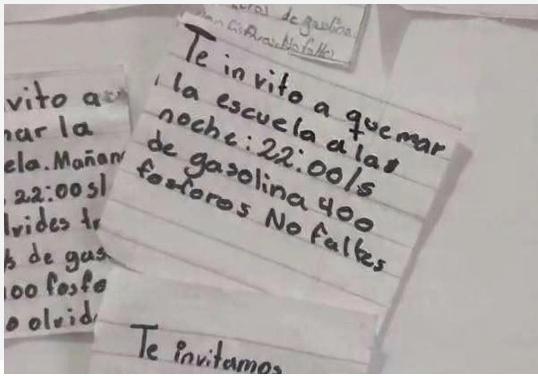 de gasolina
No faltes
Te invito a quemar
la escuela a las
noche: 22:00 ls
de gasolina 400
fosforos No faltes
vito a
nar la
ela. Mañan
22:00 sl
lvides tr
s de gas
00 fosfo
o olvid
Te invitamos